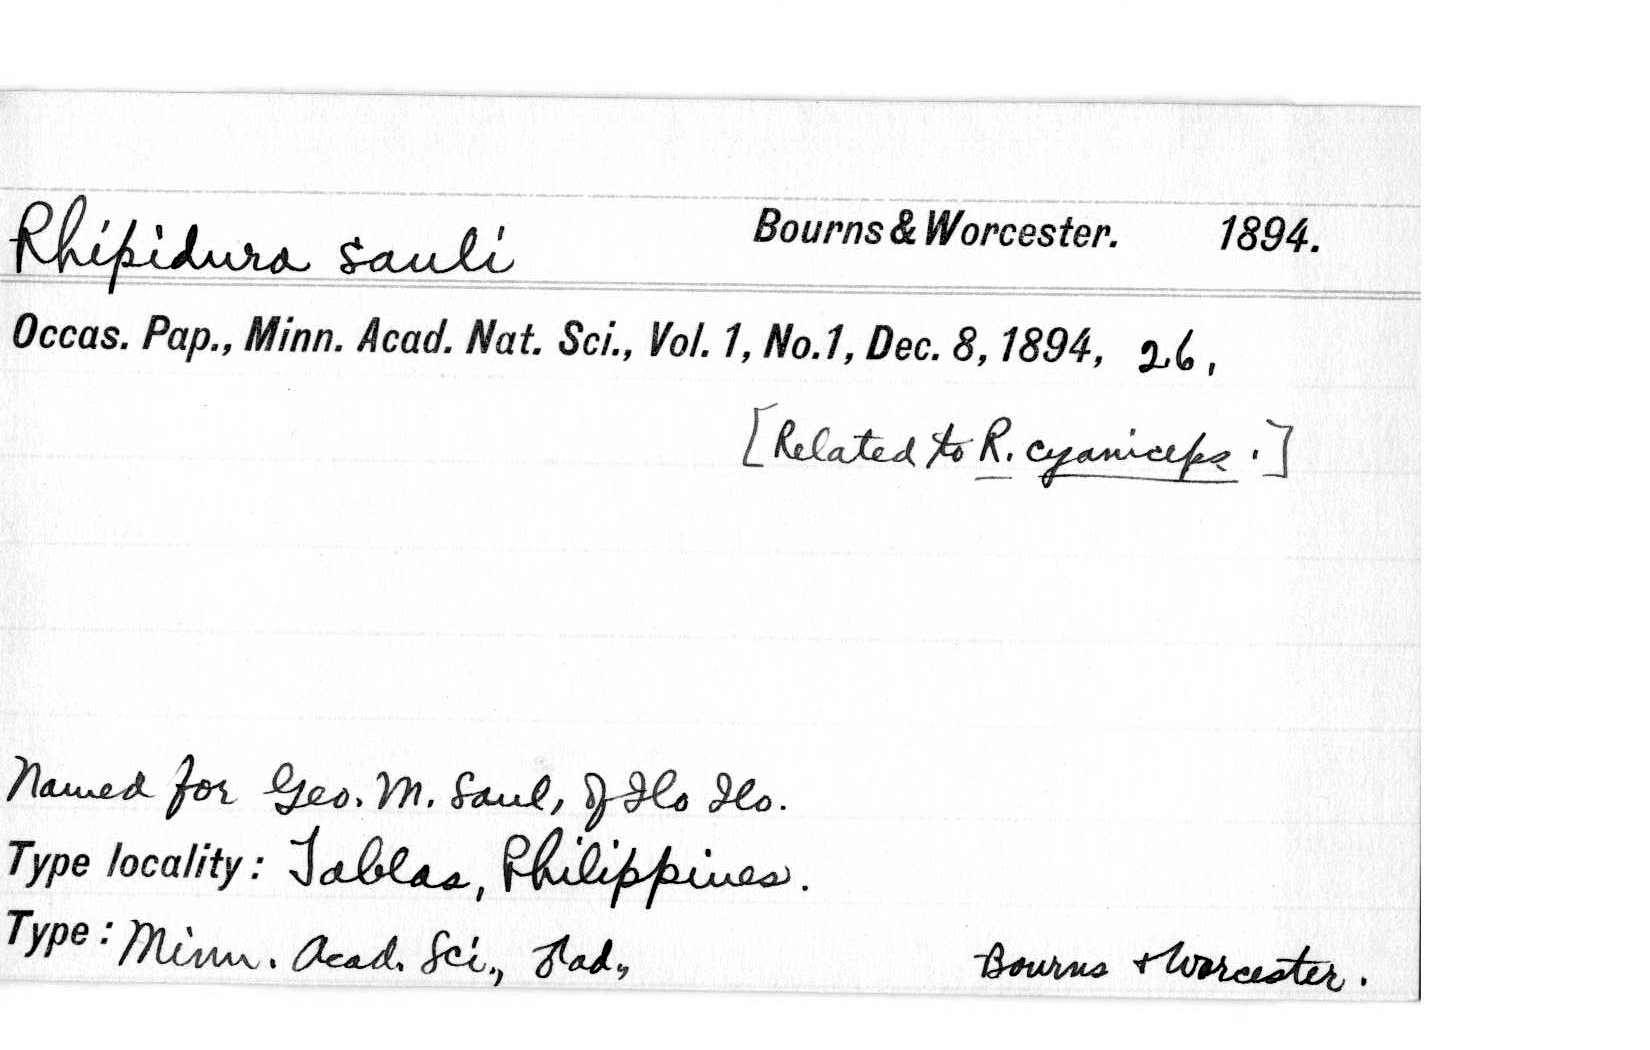 Rhipidura sauli Bourns & Worcester. 1894.
Occas. Pap., Minn. Acad. Nat. Sci., Vol. 1, No.1, Dec. 8, 1894, 26,
[Related to R. cyaniceps.]
Named for Geo. M. Saul, of Ilo Ilo.
Type locality: Tablas, Philippines.
Type: Minn. Acad. Sci., ad., Bourns & Worcester.